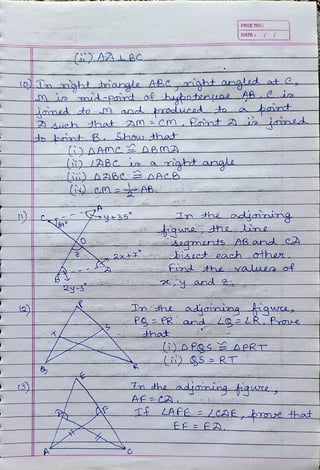 PAGE NO.:
DATE: / /
(ii) AD ⊥ BC
10) In right triangle ABC, right angled at C,
M is mid-point of hypotenuse AB. C is
joined to M and produced to a point
D such that DM = CM. Point D is joined
to point B. Show that
(i) ΔAMC ≅ ΔBMD
(ii) ∠DBC is a right angle
(iii) ΔDBC ≅ ΔACB
(iv) CM = 1/2 AB.
11) In the adjoining
figure, the line
segments AB and CD
bisect each other.
Find the values of
x, y and z.
C
A
y+35°
O
z
2x+7°
D
B
2y-3°
12) In the adjoining figure,
PQ = PR and ∠Q = ∠R. Prove
that
(i) ΔPQS ≅ ΔPRT
(ii) QS = RT
P
T
S
Q
R
13) In the adjoining figure,
AF = CD.
If ∠AFE = ∠CDE, prove that
EF = ED.
E
D
F
A
C